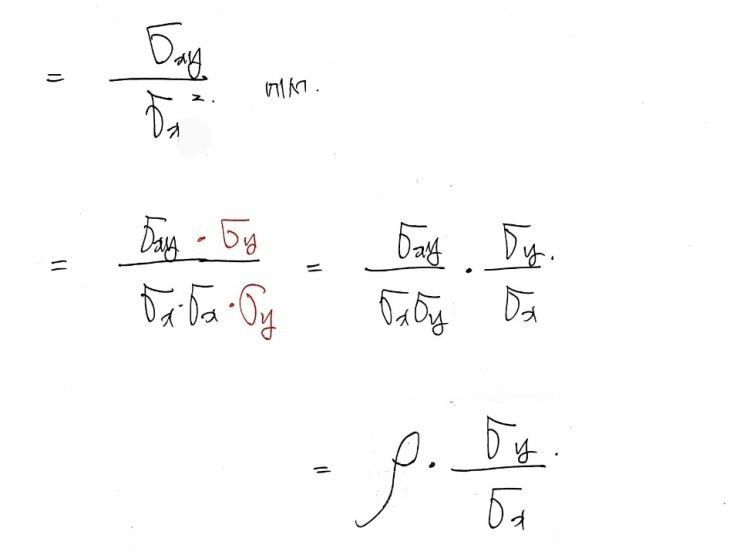 = σxy / σx².
= σxy · σy / σx · σx · σy = σxy / σxσy · σy / σx.
= ρ · σy / σx.